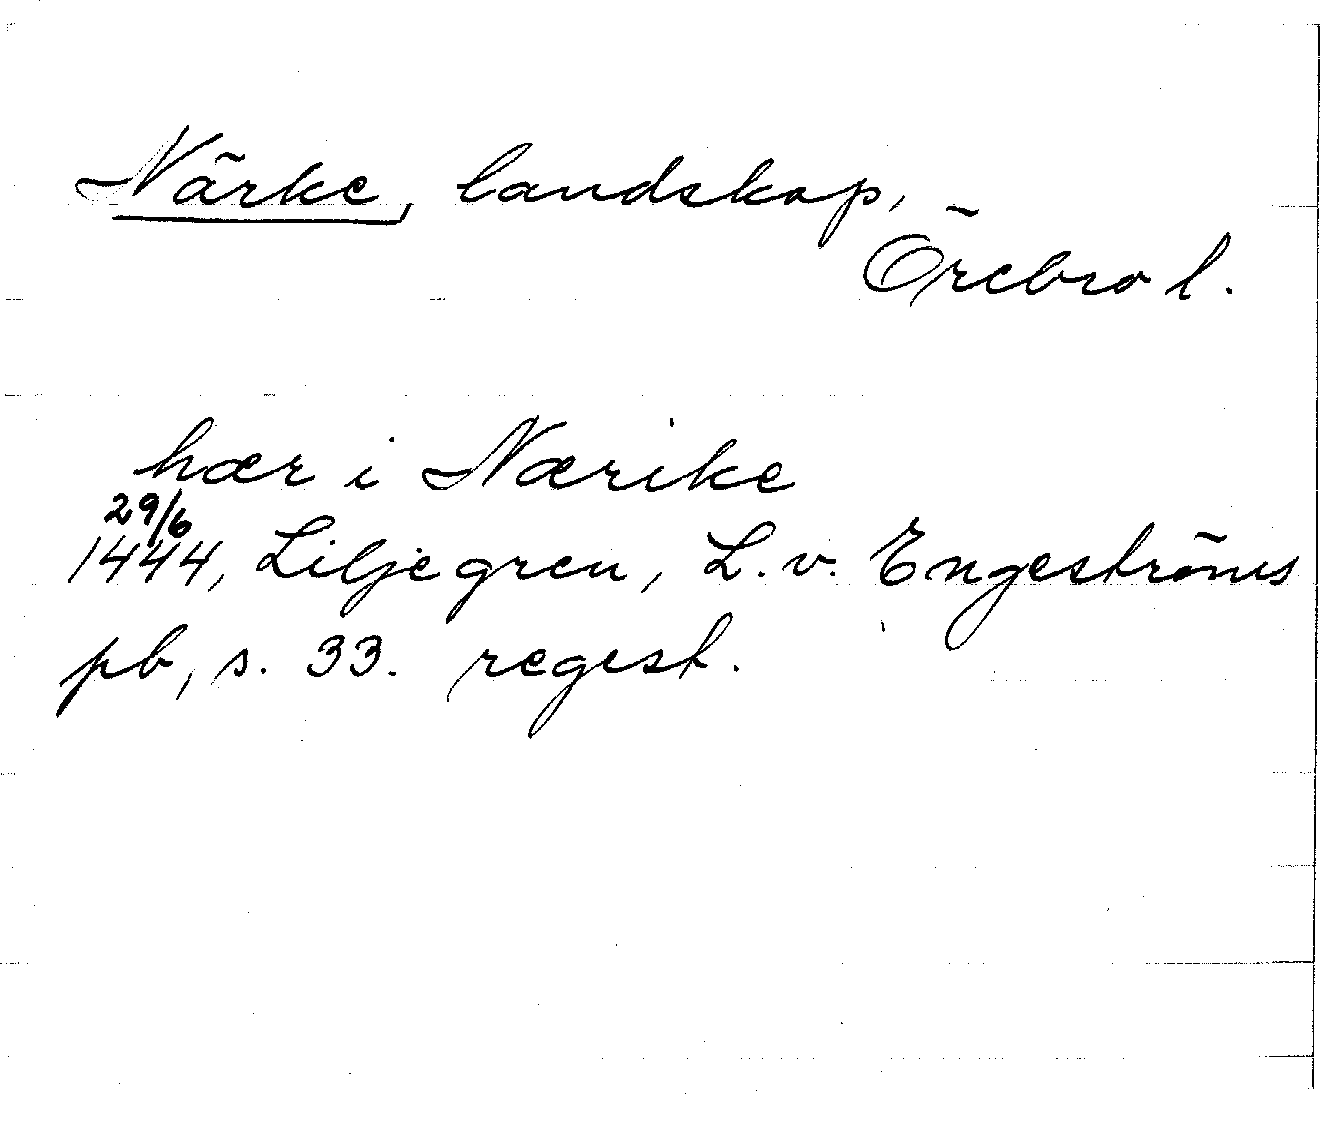 Närke, landskap,
Örebro l.
hær i Nærike
29/6
1444, Liljegren, L. v. Engeströms
pb, s. 33. regest.